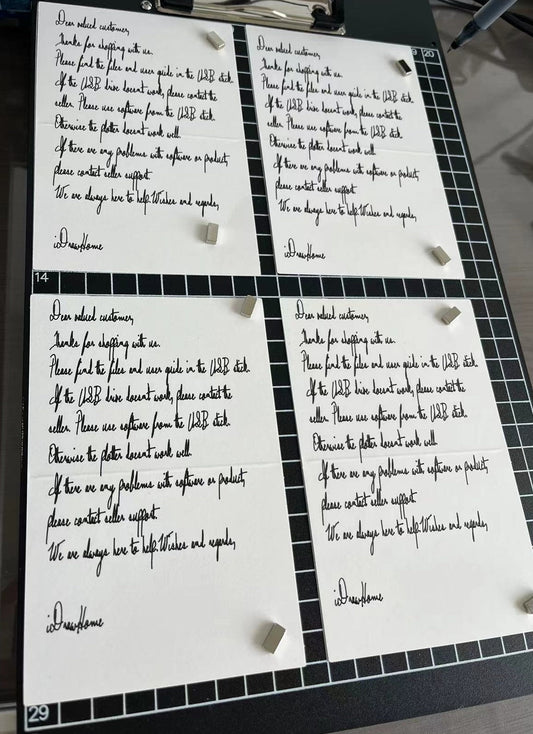 Dear valued customer,
Thanks for shopping with us.
Please find the files and user guide in the USB stick.
If the USB drive doesnt work, please contact the
seller. Please use software from the USB stick.
Otherwise the plotter doesnt work well.
If there are any problems with software or product,
please contact seller support.
We are always here to help.Wishes and regards,
iDrawHome
Dear valued customer,
Thanks for shopping with us.
Please find the files and user guide in the USB stick.
If the USB drive doesnt work, please contact the
seller. Please use software from the USB stick.
Otherwise the plotter doesnt work well
If there are any problems with software or product,
please contact seller support
We are always here to help.Wishes and regards,
iDrawHome
9 20
14
Dear valued customer,
Thanks for shopping with us.
Please find the files and user guide in the USB stick.
If the USB drive doesnt work, please contact the
seller. Please use software from the USB stick.
Otherwise the plotter doesnt work well.
If there are any problems with software or product,
please contact seller support.
We are always here to help.Wishes and regards,
iDrawHome
Dear valued customer,
Thanks for shopping with us.
Please find the files and user guide in the USB stick.
If the USB drive doesnt work, please contact the
seller. Please use software from the USB stick.
Otherwise the plotter doesnt work well.
If there are any problems with software or product,
please contact seller support.
We are always here to help.Wishes and regards,
iDrawHome
29